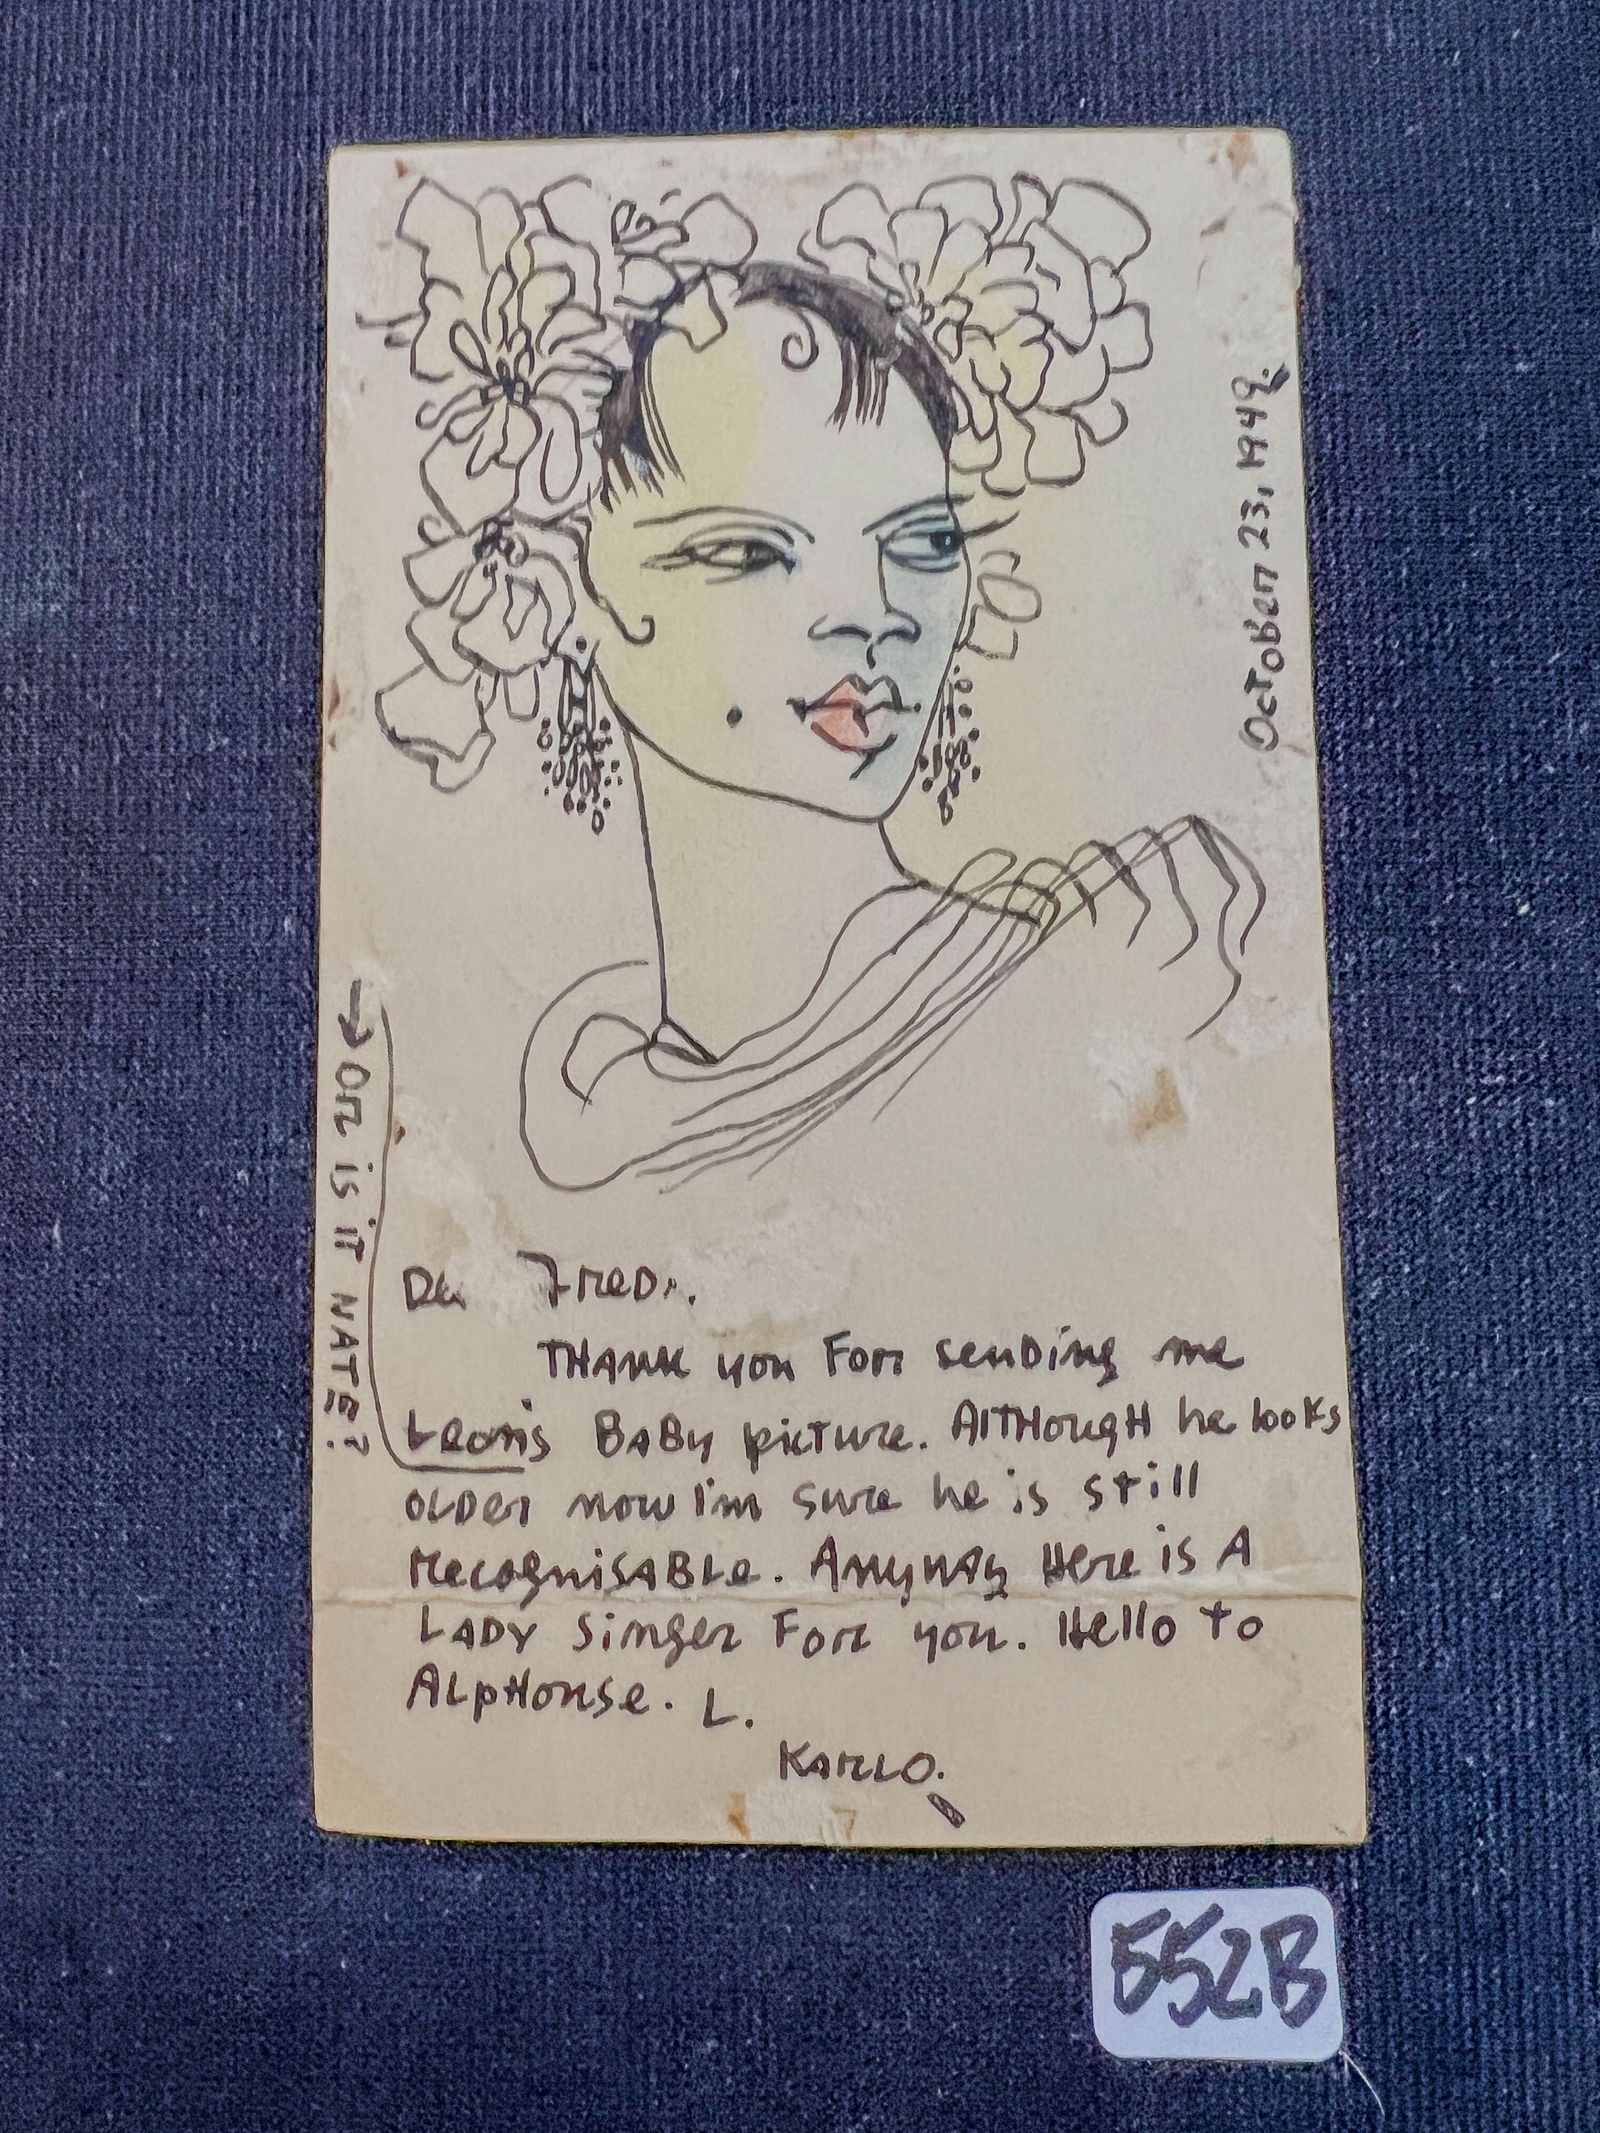 October 23, 1949.
→ or is it NATE?
De Fred.
THANK you For sending me
Leon's BABy picture. AlTHougH he looks
OLDer now I'm sure he is still
recognisABLe. Anyway Here is A
LADY singer For you. Hello to
ALpHonse. L.
KARLO.
552B